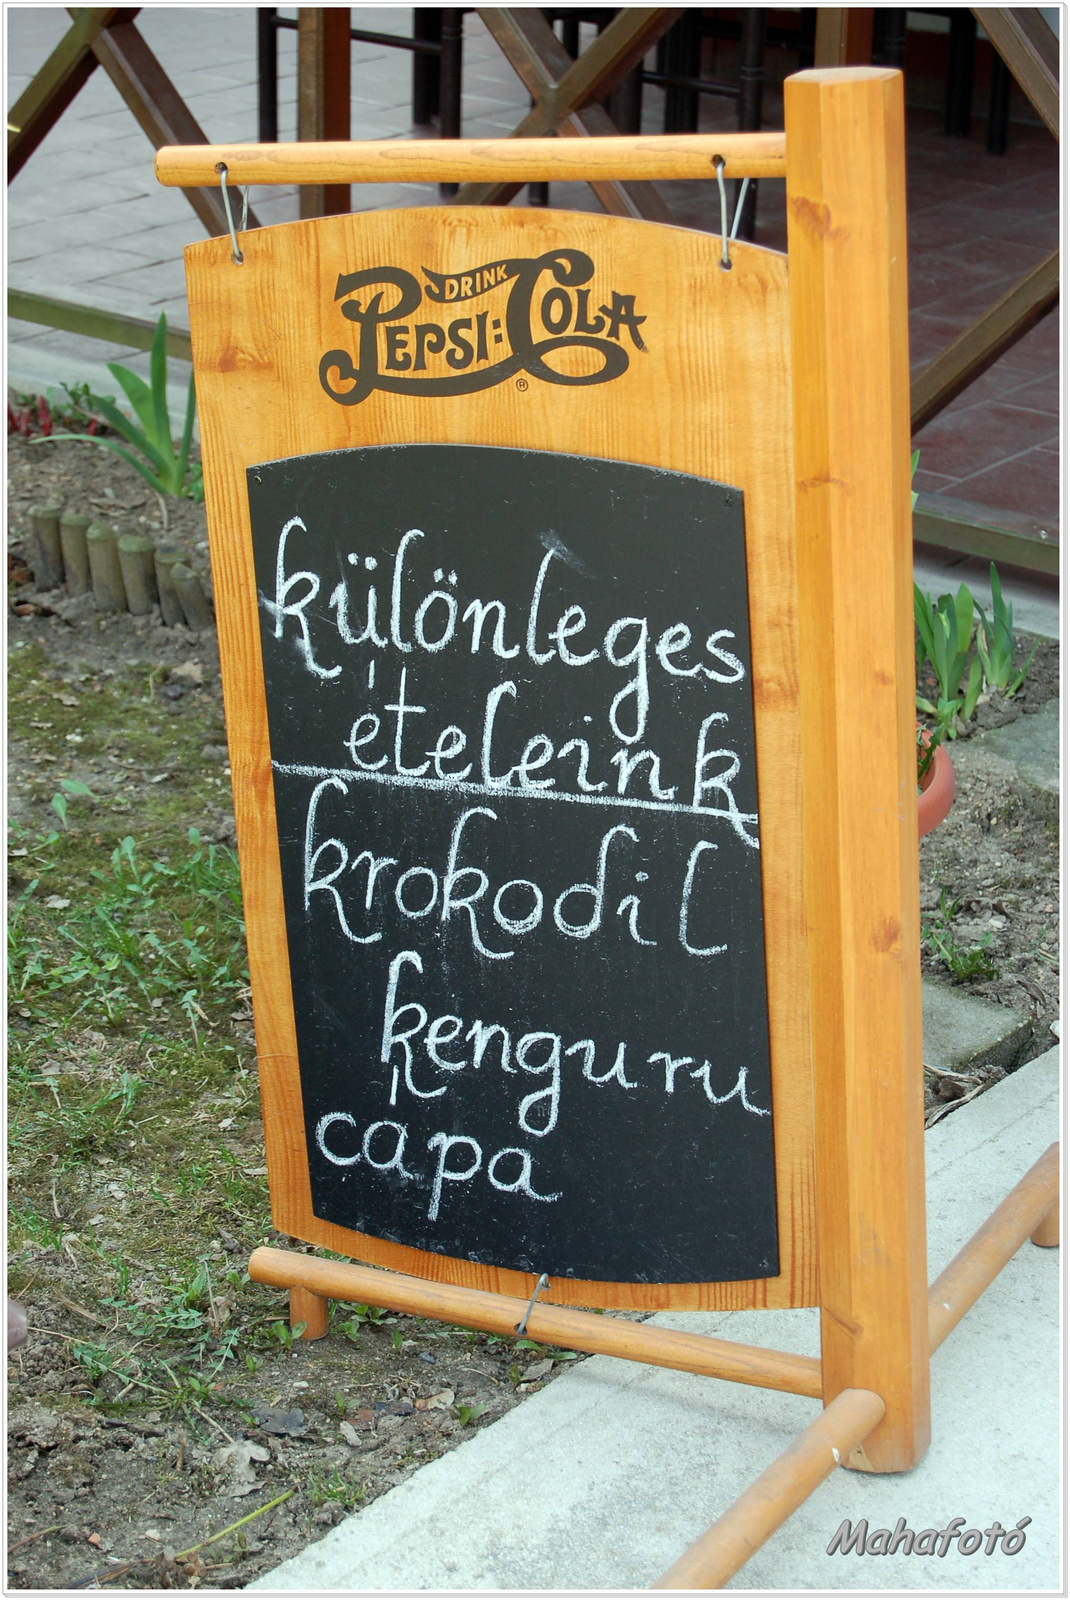 DRINK
PEPSI:COLA
®
különleges
ételeink
krokodil
kenguru
cápa
Mahafotó